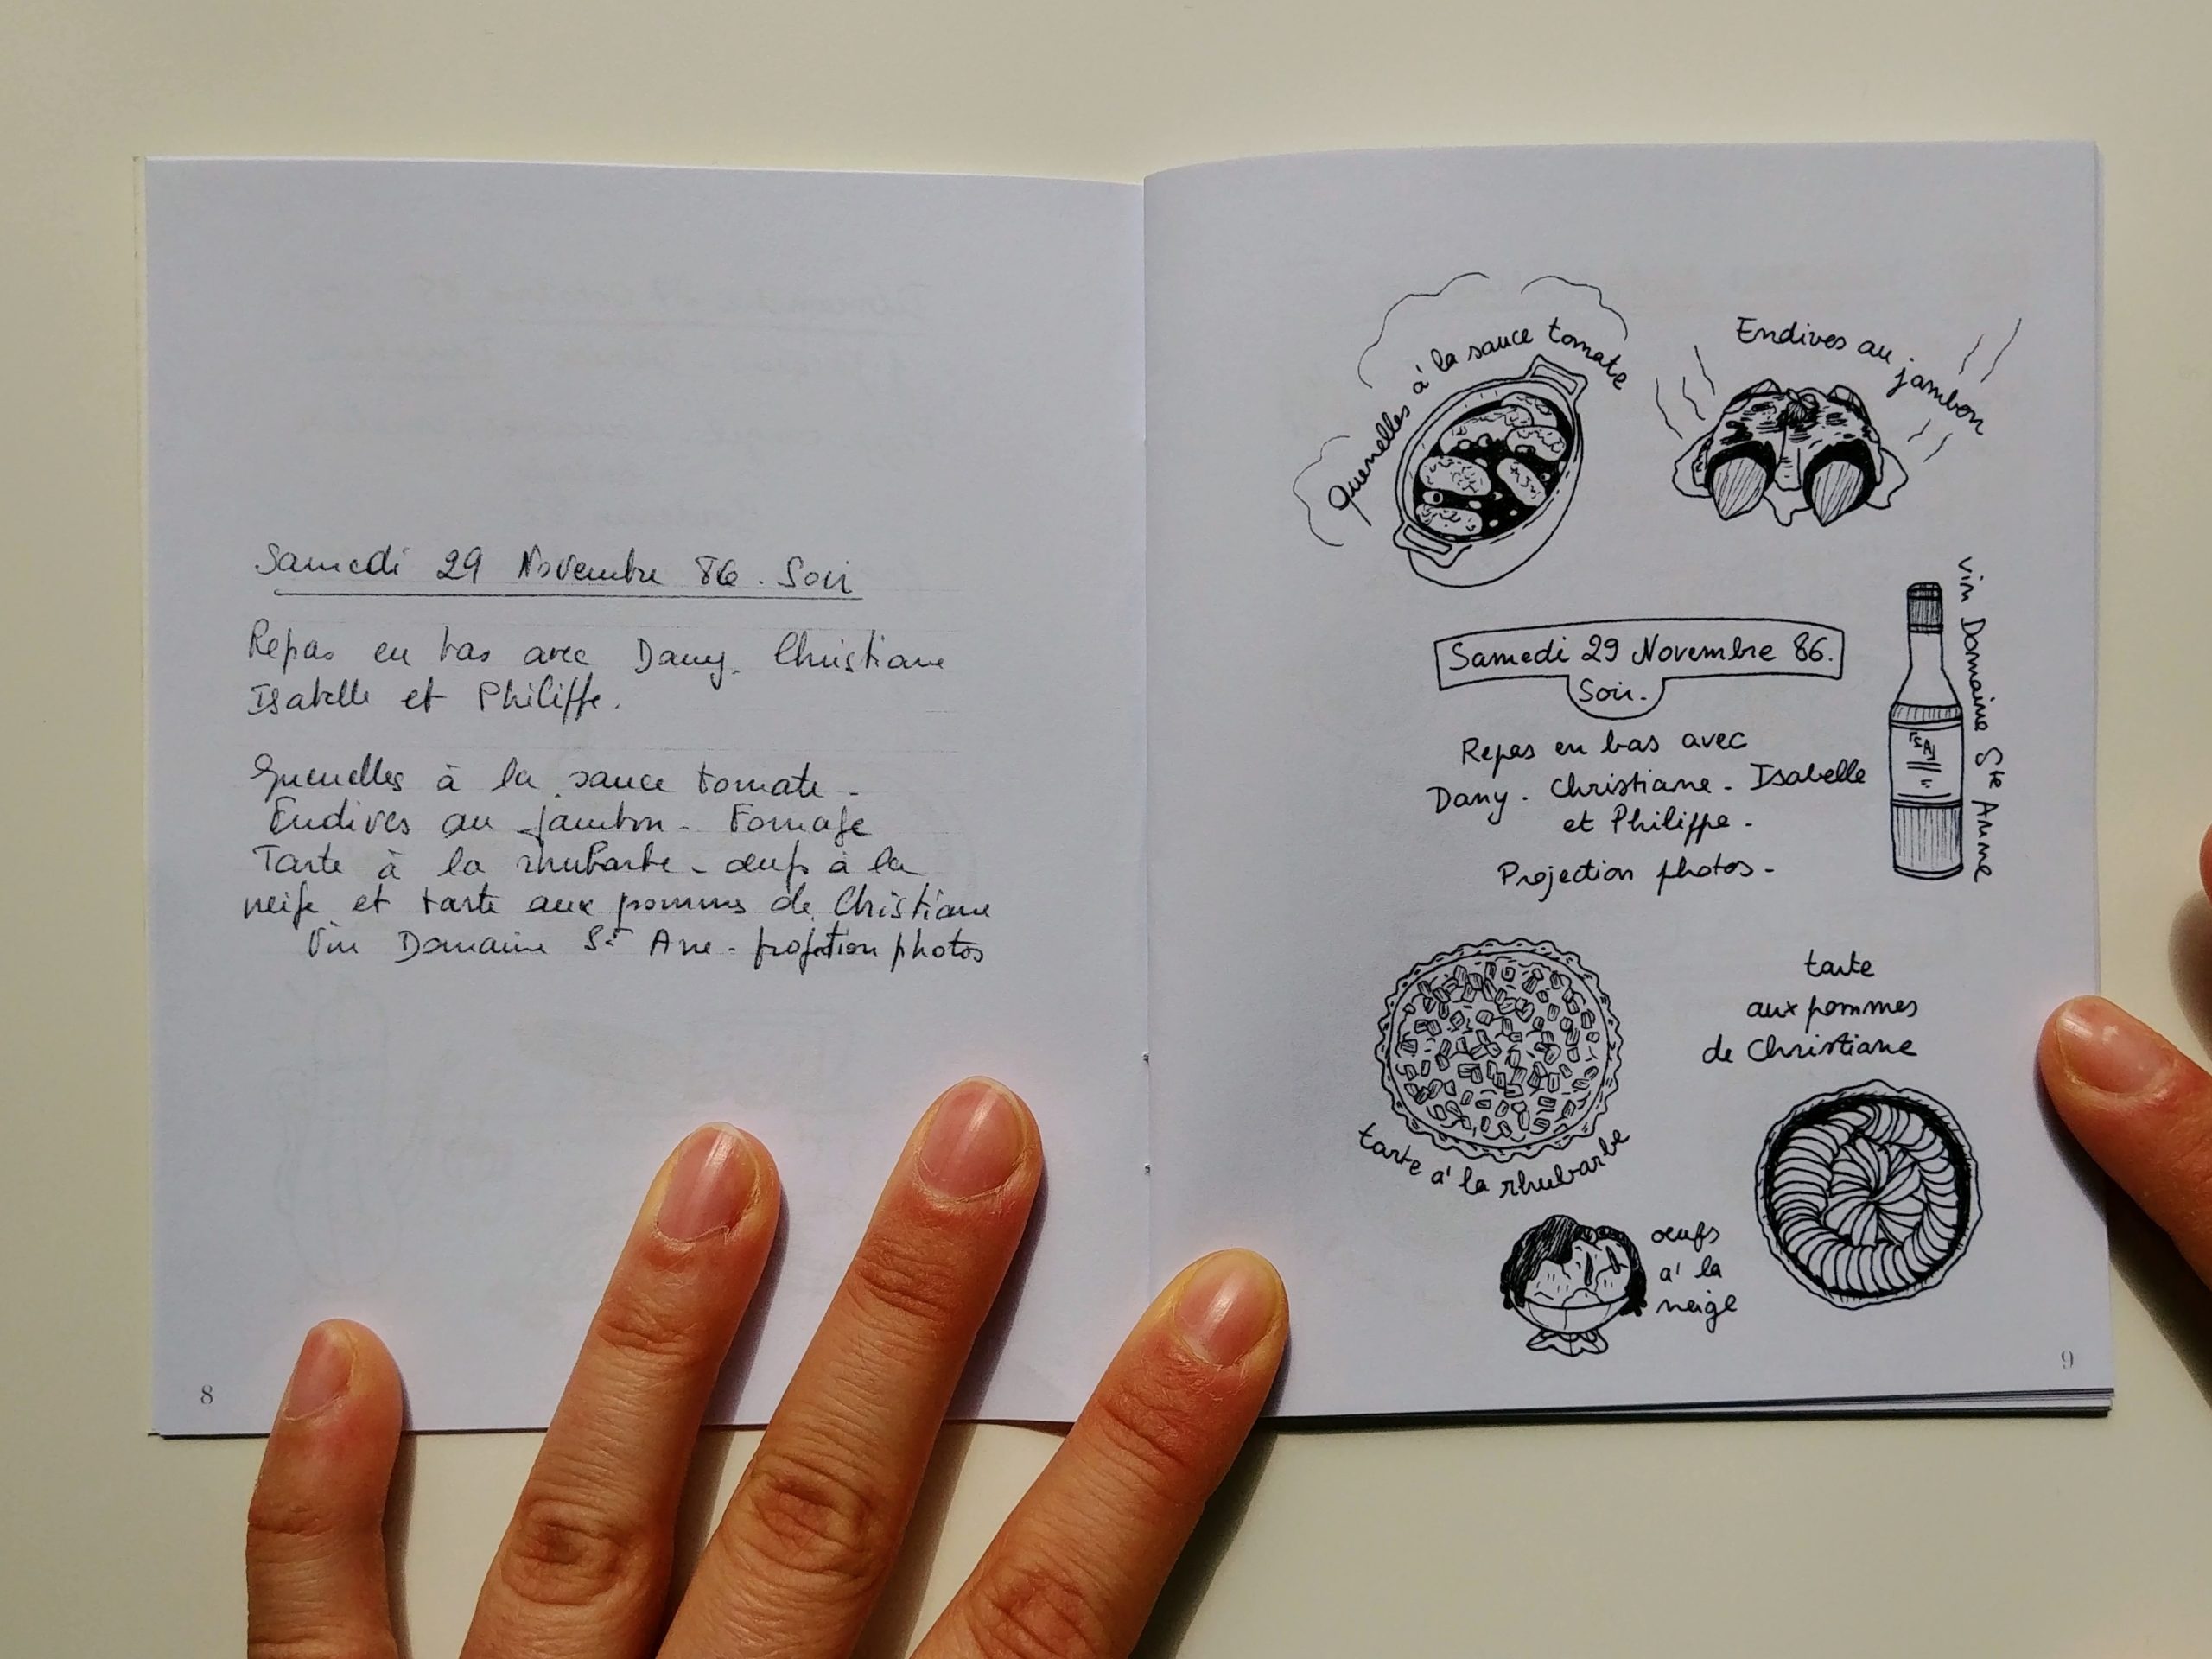 Samedi 29 Novembre 86. Soir
Repas en bas avec Dany. Christiane
Isabelle et Philippe.
Quenelles à la sauce tomate -
Endives au jambon - Fromage
Tarte à la rhubarbe - œufs à la
neige et tarte aux pommes de Christiane
Vin Domaine Ste Anne - projection photos
8
Quenelles à la sauce tomate
Endives au jambon
Samedi 29 Novembre 86.
Soir.
Repas en bas avec
Dany - Christiane - Isabelle
et Philippe -
Projection photos -
vin Domaine Ste Anne
tarte à la rhubarbe
tarte
aux pommes
de Christiane
œufs
à la
neige
9